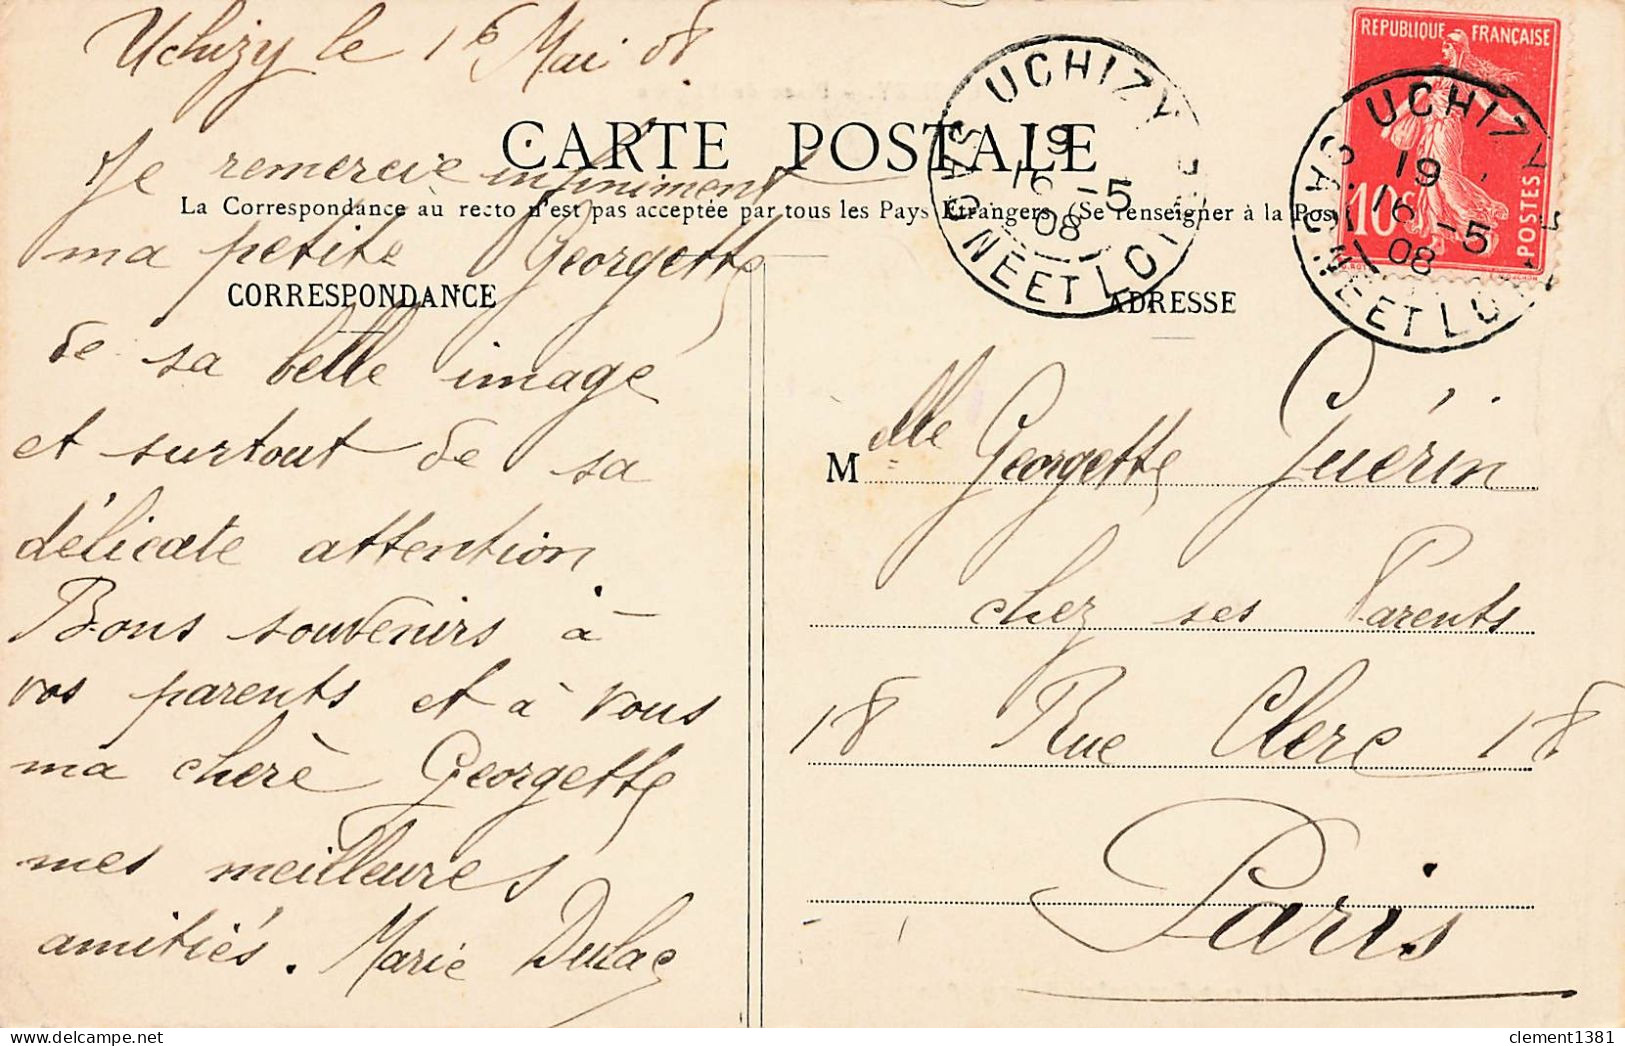 Uchizy le 16 Mai 08
CARTE POSTALE
La Correspondance au recto n'est pas acceptée par tous les Pays Étrangers (Se renseigner à la Pos
CORRESPONDANCE
Je remercie infiniment
ma petite Georgette
de sa belle image
et surtout de sa
délicate attention
Bons souvenirs à
vos parents et à vous
ma chère Georgette
mes meilleures
amitiés. Marie Dulac
UCHIZY
19
16 -5
08
SAONE ET LOIRE
REPUBLIQUE FRANÇAISE
10c
POSTES
UCHIZY
19
16 -5
08
SAONE ET LOIRE
ADRESSE
Melle Georgette Guérin
chez ses Parents
18 Rue Clerc 18
Paris
clement1381